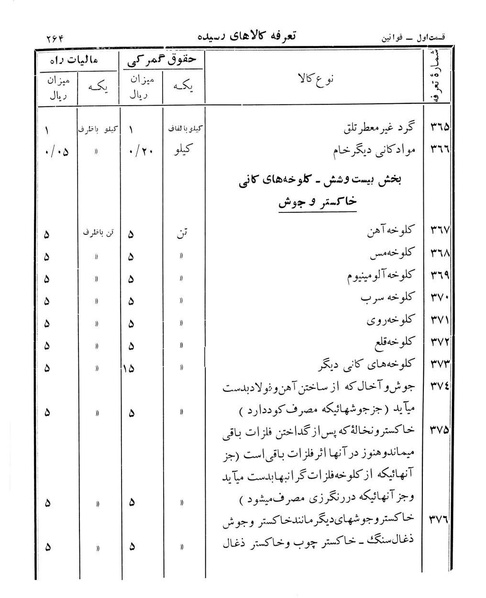 قسمت اول ــ قوانین تعرفه کالاهای رسیده ۲۶۴
شمارهٔ تعرفه نوع کالا حقوق گمرکی مالیات راه
یکه میزان ریال یکه میزان ریال
۳۶۵ گرد غیر معطر تلق کیلو با لفاف ۱ کیلو باظرف ۱
۳۶۶ مواد کانی دیگر خام کیلو ۰/۲۰ « ۰/۰۵
بخش بیست و شش ــ کلوخه‌های کانی
خاکستر و جوش
۳۶۷ کلوخه آهن تن ۵ تن باظرف ۵
۳۶۸ کلوخه مس « ۵ « ۵
۳۶۹ کلوخه آلومینیوم « ۵ « ۵
۳۷۰ کلوخه سرب « ۵ « ۵
۳۷۱ کلوخه روی « ۵ « ۵
۳۷۲ کلوخه قلع « ۵ « ۵
۳۷۳ کلوخه‌های کانی دیگر « ۱۵ « ۵
۳۷٤ جوش و آخال که از ساختن آهن و فولاد بدست
میآید ( جز جوشهائیکه مصرف کود دارد ) « ۵ « ۵
۳۷۵ خاکستر و نخاله که پس از گداختن فلزات باقی
میماند و هنوز در آنها اثر فلزات باقی است ( جز
آنهائیکه از کلوخه فلزات گرانبها بدست میآید
و جز آنهائیکه در رنگرزی مصرف میشود ) « ۵ « ۵
۳۷۶ خاکستر و جوشهای دیگر مانند خاکستر و جوش
ذغال سنگ ــ خاکستر چوب و خاکستر ذغال « ۵ « ۵